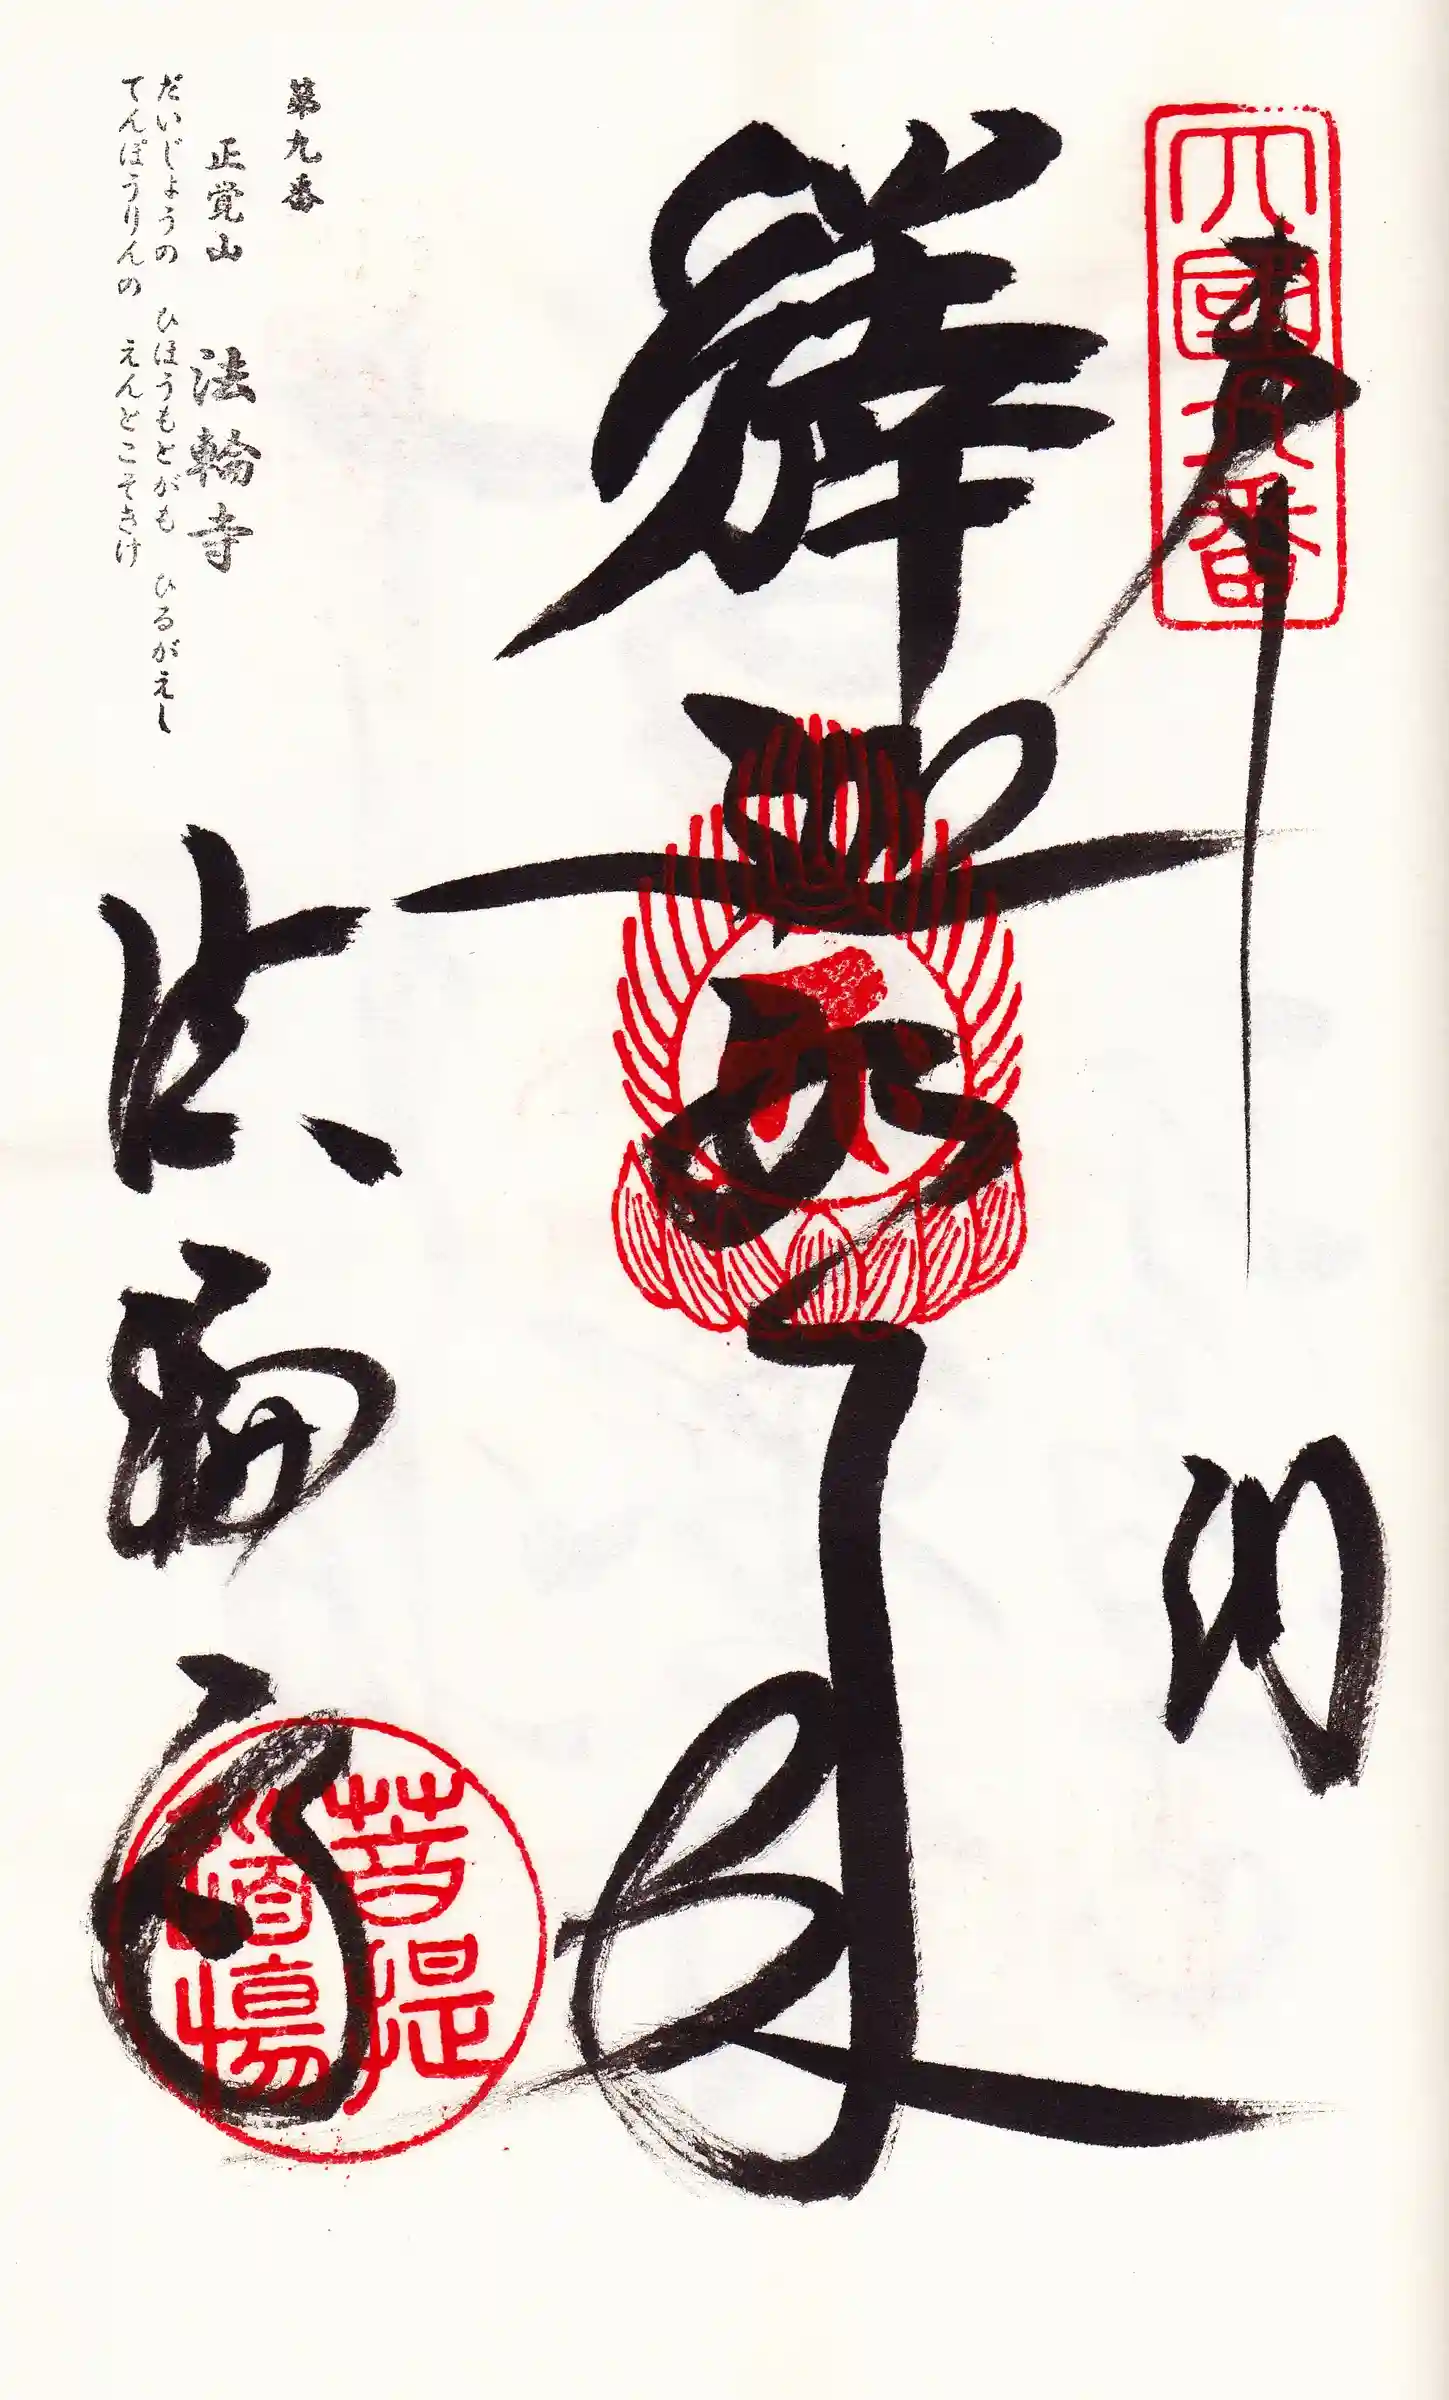 四國九番
奉納
釋迦如来
第九番
正覚山 法輪寺
だいじょうの ひほうもとがも ひるがえし
てんぽうりんの えんとこそきけ
法輪寺
菩提
道場